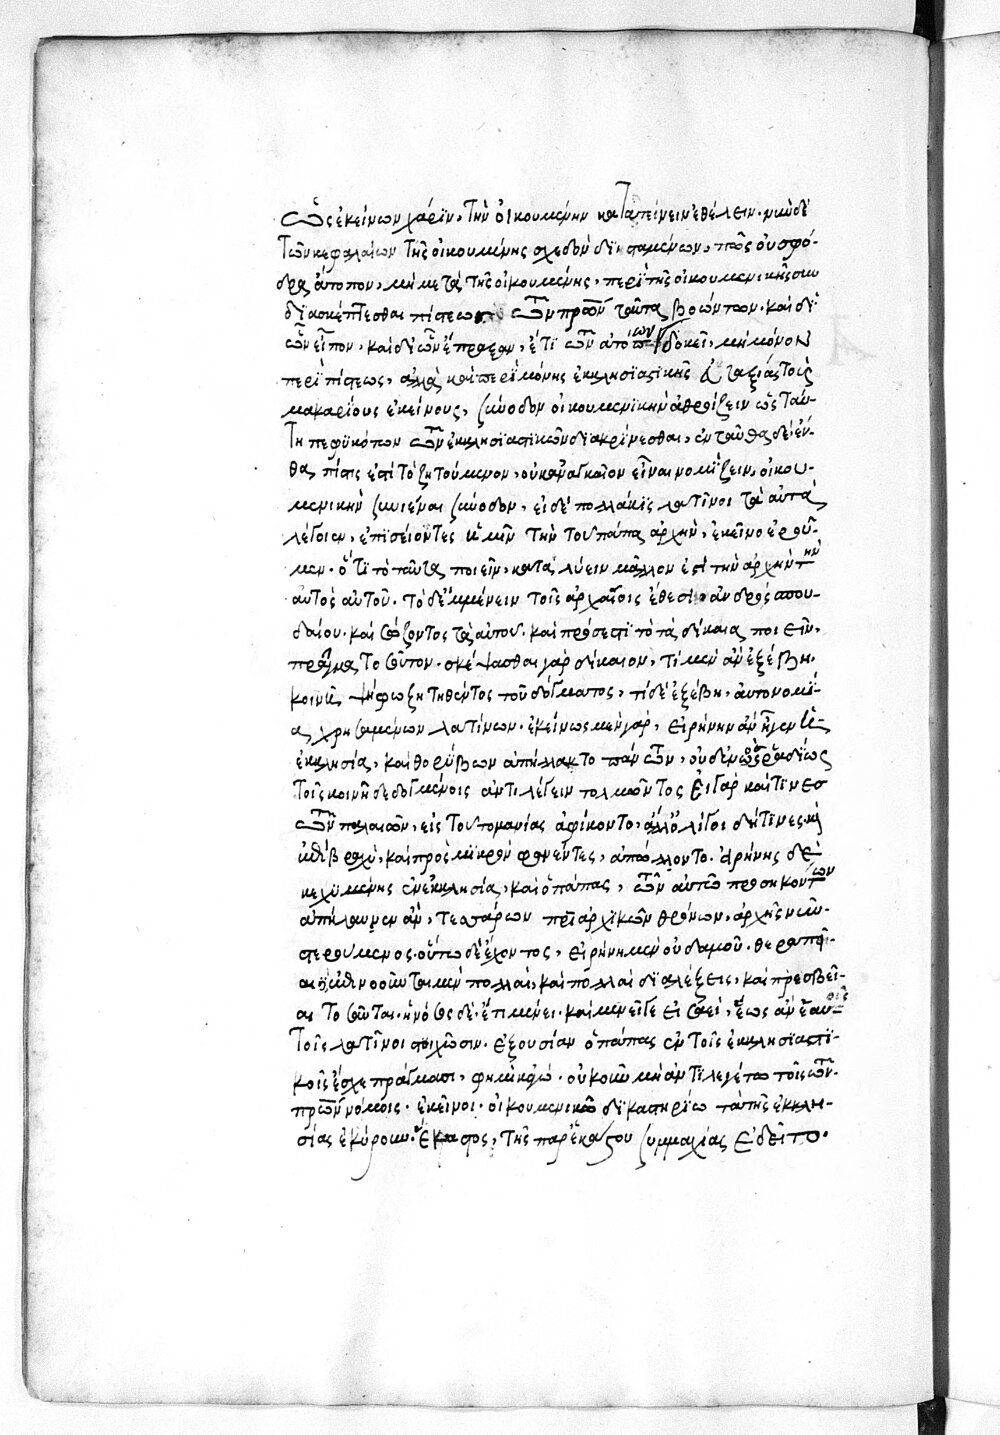 ὡς ἐκείνων χάριν, τὴν οἰκουμένην καταπίνειν ἐθέλειν. μηδὲ
τῶν κεφαλαίων τῆς οἰκουμένης σχεδὸν διϊσταμένων, πῶς οὐ σφό-
δρα ἄτοπον, μὴ μετὰ τῆς οἰκουμένης, περὶ τῆς οἰκουμενικῆς
διασκέπτεσθαι πίστεως τῶν πραῶν ταῦτα βοώντων. καὶ δι'
ὧν εἶπον, καὶ δι' ὧν ἔπραξαν, ἔτι τῶν ἀτόπων δοκεῖ, μὴ μόνον
περὶ πίστεως, ἀλλὰ καὶ περὶ μόνης ἐκκλησιαστικῆς εὐταξίας τοὺς
μακαρίους ἐκείνους, σύνοδον οἰκουμενικὴν ἀθροίζειν ὡς ταύ-
τη πεφυκότων τῶν ἐκκλησιαστικῶν διακρίνεσθαι, ἐνταῦθα δὲ ἔν-
θα πίστις ἐστὶ τὸ ζητούμενον, οὐκ ἀναγκαῖον εἶναι νομίζειν, οἰκου-
μενικὴν συνιέναι σύνοδον, εἰ δὲ πολλάκις λατῖνοι τὰ αὐτὰ
λέγοιεν, ἐπισείοντες ἡμῖν τὴν τοῦ πάπα ἀρχὴν, ἐκεῖνο ἐροῦ-
μεν. ὅτι τὸ ταῦτα ποιεῖν, καταλύειν μᾶλλον ἐστὶ τὴν ἀρχὴν τὴν
αὐτὸς αὑτοῦ. τὸ δ' ἐμμένειν τοῖς ἀρχαίοις ἔθεσιν, ἀνδρός σπου-
δαίου. καὶ σώζοντος τὰ αὑτοῦ. καὶ πρόσεστι τὸ τὰ δίκαια ποιεῖν,
πρᾶγμα τοῦτον. σκέψασθαι γὰρ δίκαιον, τί μὲν ἂν ἐξέβη,
κοινῇ ψήφῳ ζητηθέντος τοῦ δόγματος, τί δὲ ἐξέβη, αὐτονομί-
α χρησαμένων λατίνων. ἐκείνως μὲν γὰρ, εἰρήνην ἂν ἦγεν ἡ
ἐκκλησία, καὶ θορύβων ἀπήλλακτο πάντων, οὐδενὸς ῥαδίως
τοῖς κοινῇ δεδογμένοις ἀντιλέγειν τολμῶντος εἰ γὰρ καί τινες
τῶν παλαιῶν, εἰς τοῦτο μανίας ἀφίκοντο, ἀλλ' ὀλίγοι δή τινες καὶ
ἐπὶ βραχὺ, καὶ πρὸς μικρὸν φανέντες, ἀπώλλοντο. εἰρήνης δὲ
κεχυμένης ἐν ἐκκλησία, καὶ ὁ πάπας, τῶν αὐτῷ προσηκόντων
ἀπήλαυσεν ἂν, τεσσάρων πατριαρχικῶν θρόνων, ἀρχῆς νῦν
στερούμενος. οὕτω δὲ ἔχοντος, εἰρήνη μὲν οὐδαμοῦ. θεραπεῖ-
αι ἐπινοοῦνται μὲν πολλαὶ, καὶ πολλαὶ διαλέξεις, καὶ πρεσβεῖ-
αι τοῦται. ἡ νόσος δὲ ἐπιμένει. καὶ μενεῖ γε εἰσαεὶ, ἕως ἂν ἑαυ-
τοῖς λατῖνοι στοιχῶσιν. ἐξουσίαν ὁ πάπας ἐν τοῖς ἐκκλησιαστι-
κοῖς ἔσχε πράγμασι, φημὶ κἀγώ. οὐκοῦν μὴ ἀντιλεγέτω τοῖς τῶν
πρῶν νόμοις. ἐκεῖνοι. οἰκουμενικῷ δικαστηρίῳ τὰ τῆς ἐκκλη-
σίας ἐκύρουν. ἕκαστος, τῆς παρ' ἑκάστου συμμαχίας ἐδεῖτο.